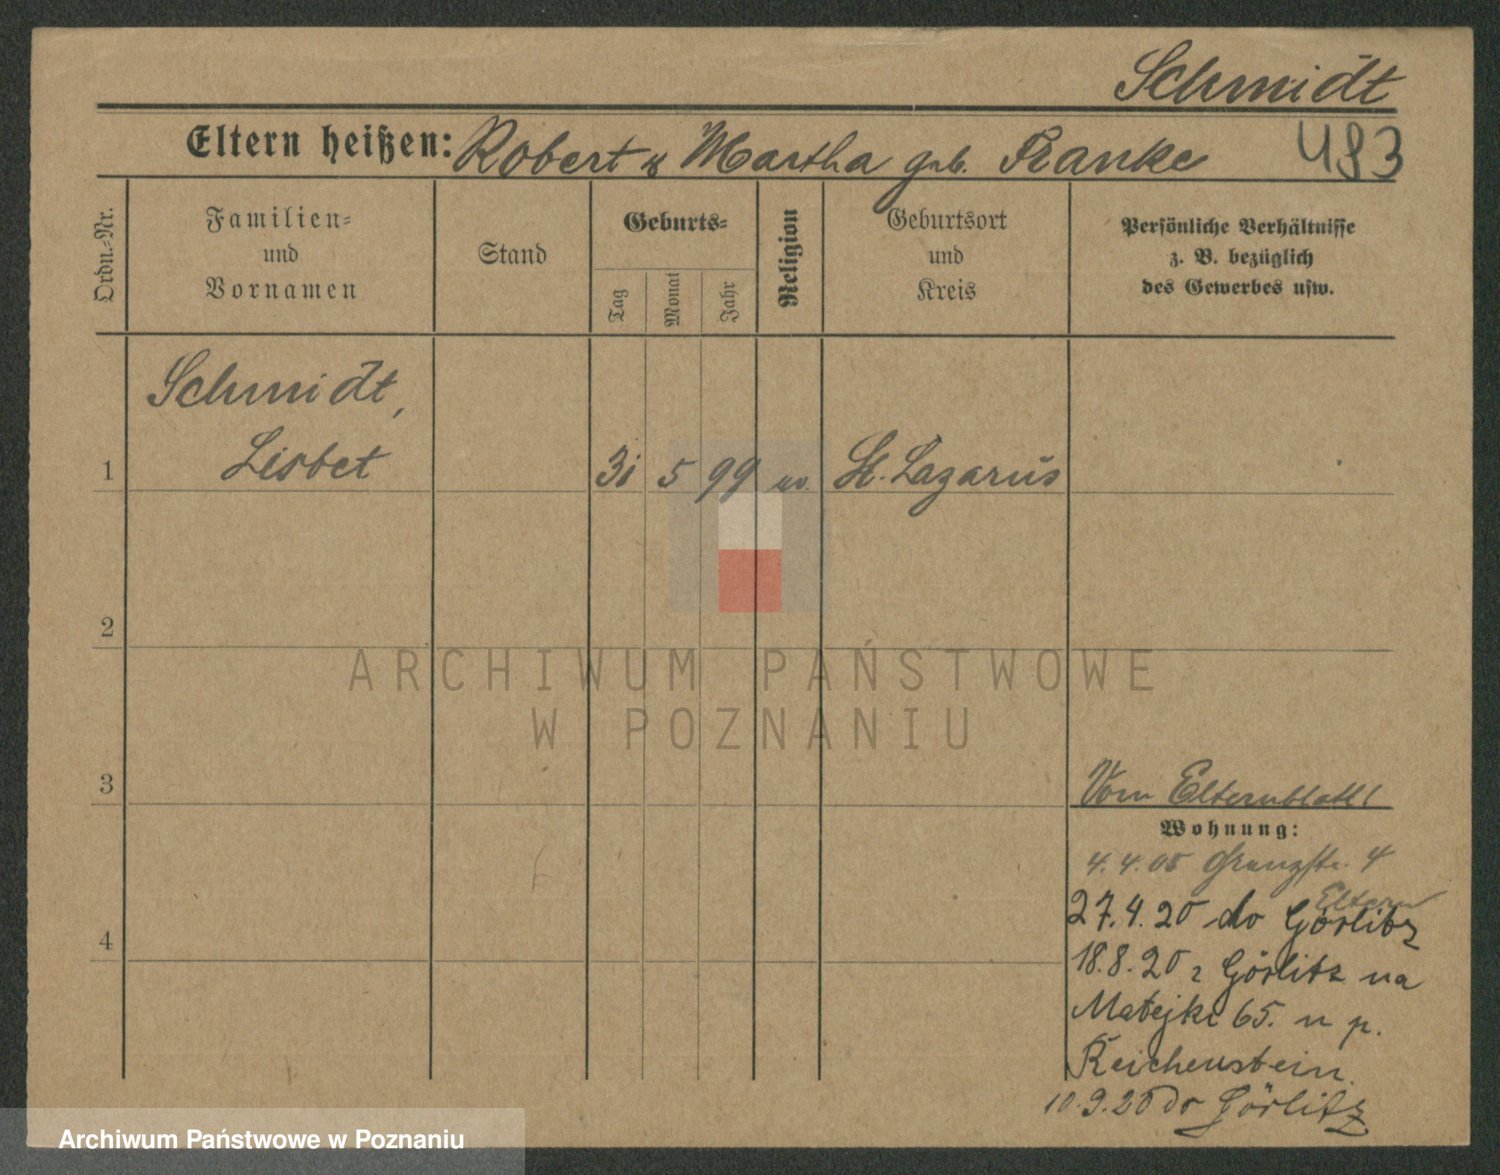 Schmidt
Eltern heißen: Robert u Martha geb. Ranke 483
Ordn.=Nr.
Familien=
und
Vornamen
Stand
Geburts=
Tag
Monat
Jahr
Religion
Geburtsort
und
Kreis
Persönliche Verhältnisse
z. B. bezüglich
des Gewerbes usw.
Schmidt,
1 Lisbet 31 5 99 ev. St. Lazarus
2
3
Vom Elternblatt
Wohnung:
4.4.05 Grenzstr. 4
Eltern
27.4.20 do Görlitz
4
18.8.20 z Görlitz na
Matejki 65. u p.
Reichenstein.
10.9.20 do Görlitz
ARCHIWUM PAŃSTWOWE
W POZNANIU
Archiwum Państwowe w Poznaniu